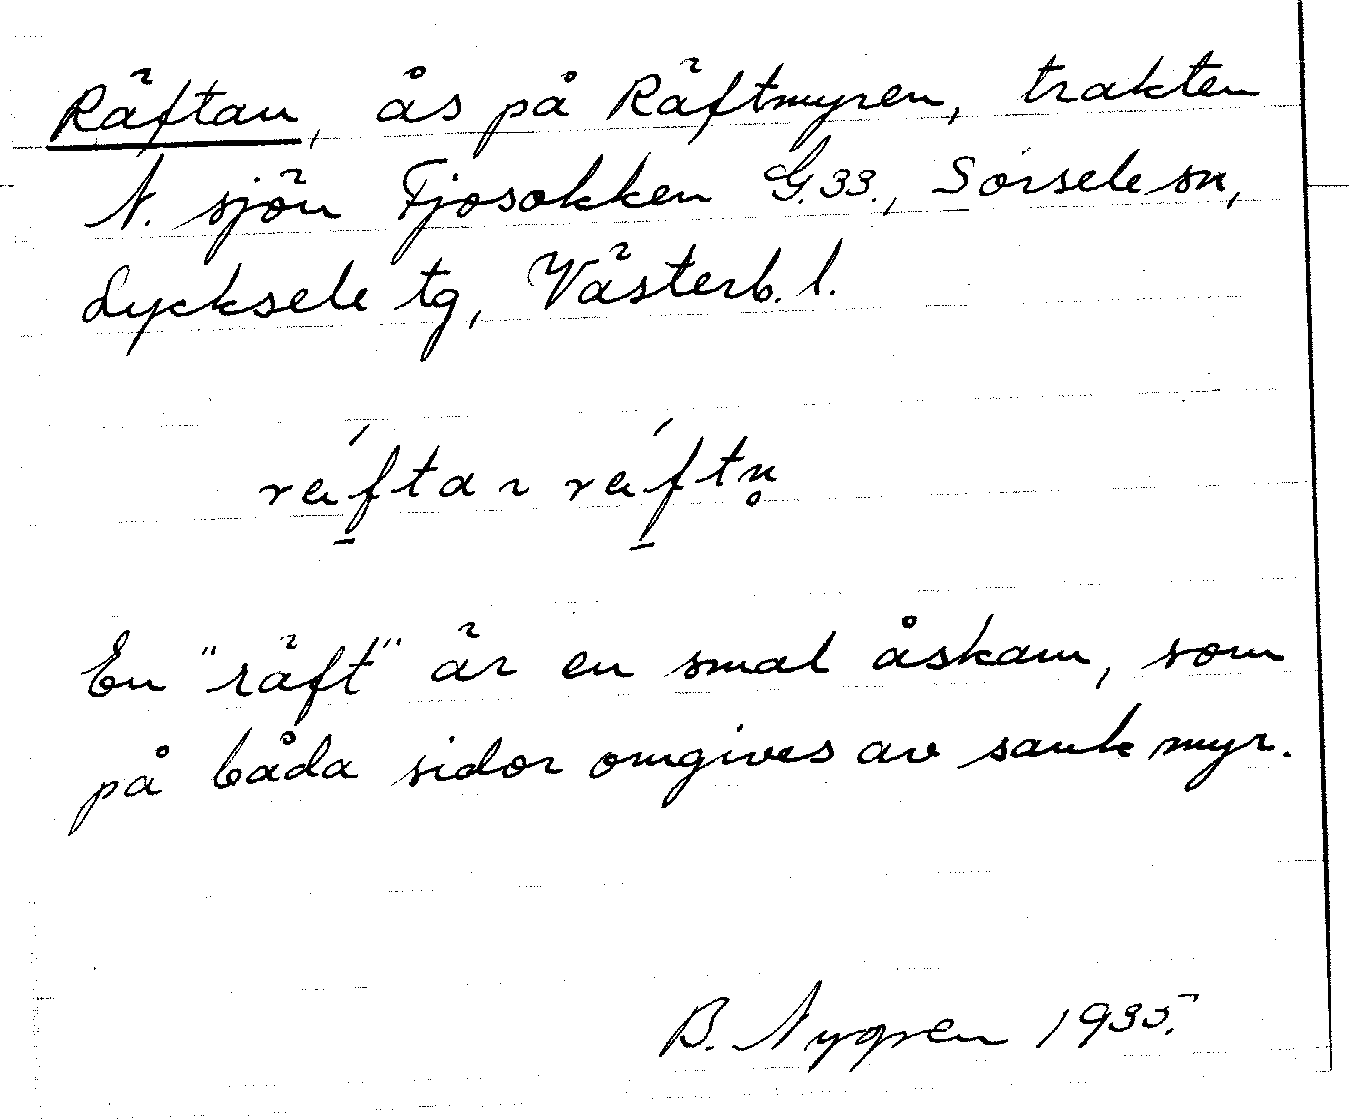 Räftan, ås på Räftmyren, trakten
N. sjön Fjosokken G.33., Sorsele sn,
Lycksele tg, Västerb. l.
ráftan ráftn̥
En "räft" är en smal åskam, som
på båda sidor omgives av sank myr.
B. Nygren 1935.